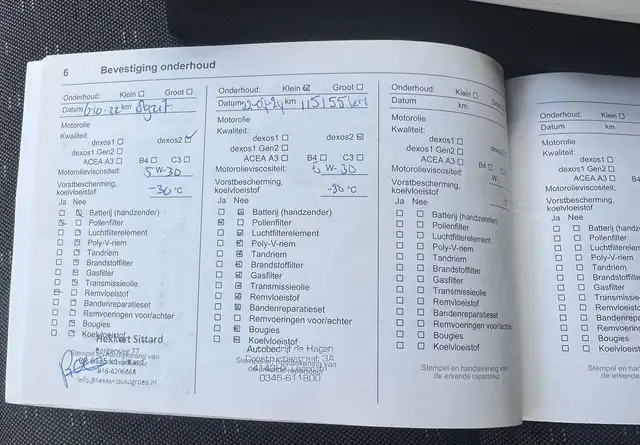 6 Bevestiging onderhoud
Onderhoud: Klein Groot
Datum 6-10-22 km
Motorolie
Kwaliteit:
dexos1 dexos2
dexos1 Gen2
ACEA A3 B4 C3
Motorolieviscositeit: 5 W-30
Vorstbescherming, koelvloeistof -30 °C
Ja Nee
Batterij (handzender)
Pollenfilter
Luchtfilterelement
Poly-V-riem
Tandriem
Brandstoffilter
Gasfilter
Transmissieolie
Remvloeistof
Bandenreparatieset
Remvoeringen voor/achter
Bougies
Koelvloeistof
Hekkert Sittard
Stempel en handtekening van
Onderhoud: Klein Groot
Datum km
Motorolie
Kwaliteit:
dexos1 dexos2
dexos1 Gen2
ACEA A3 B4 C3
Motorolieviscositeit: 5 W-30
Vorstbescherming, koelvloeistof -30 °C
Ja Nee
Batterij (handzender)
Pollenfilter
Luchtfilterelement
Poly-V-riem
Tandriem
Brandstoffilter
Gasfilter
Transmissieolie
Remvloeistof
Bandenreparatieset
Remvoeringen voor/achter
Bougies
Koelvloeistof
Autobedrijf de Hagen
Stempel en handtekening van
0345-611800
Onderhoud: Klein Groot
Datum km
Motorolie
Kwaliteit:
dexos1 dexos2
dexos1 Gen2
ACEA A3 B4 C
Motorolieviscositeit:
W-
Vorstbescherming,
koelvloeistof
Ja Nee
Batterij (handzender)
Pollenfilter
Luchtfilterelement
Poly-V-riem
Tandriem
Brandstoffilter
Gasfilter
Transmissieolie
Remvloeistof
Bandenreparatieset
Remvoeringen voor/achter
Bougies
Koelvloeistof
Stempel en handtekening van
de erkende reparateur
Onderhoud: Klein
Datum km
Motorolie
Kwaliteit:
dexos1
dexos1 Gen2
ACEA A3 B4
Motorolieviscositeit:
Vorstbescherming,
koelvloeistof
Ja Nee
Batterij (handz
Pollenfilter
Luchtfilterele
Poly-V-riem
Tandriem
Brandstoffilt
Gasfilter
Transmissi
Remvloeist
Bandenrepa
Remvoering
Bougies
Koelvloeist
Stempel en handte
de erkende